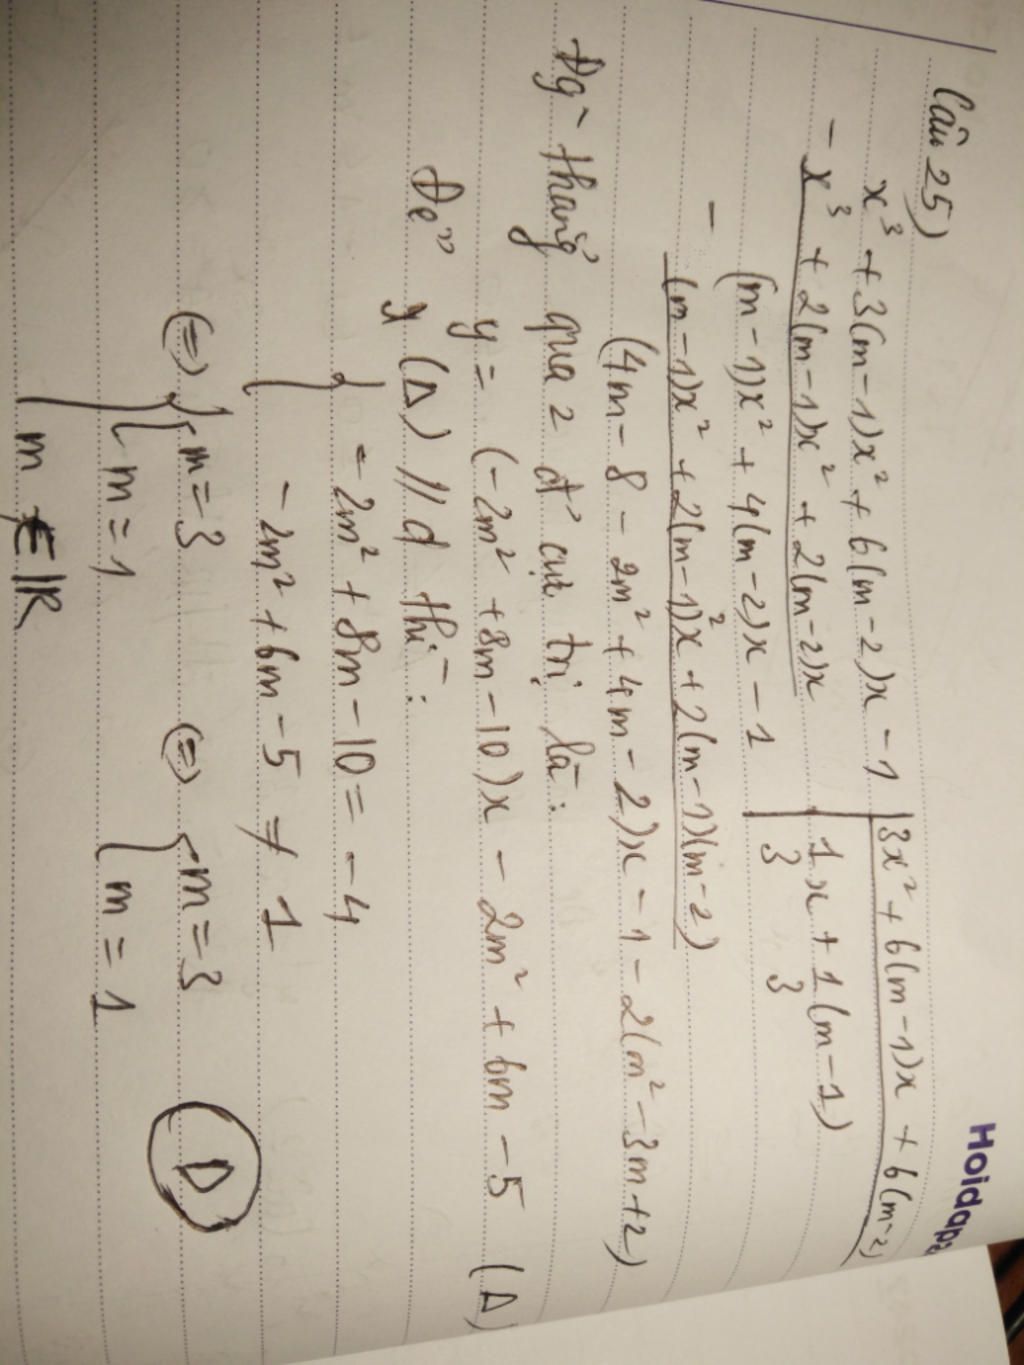 Hoidap
Câu 25)
x³ + 3(m-1)x² + 6(m-2)x - 1 | 3x² + 6(m-1)x + 6(m-2)
- x³ + 2(m-1)x² + 2(m-2)x | 1/3 x + 1/3 (m-1)
(m-1)x² + 4(m-2)x - 1
- (m-1)x² + 2(m-1)²x + 2(m-1)(m-2)
(4m - 8 - 2m² + 4m - 2)x - 1 - 2(m² - 3m + 2)
Đg~ thẳng qua 2 đ' cực trị là:
y = (-2m² + 8m - 10)x - 2m² + 6m - 5 (Δ)
Để (Δ) // d thì:
{ -2m² + 8m - 10 = -4
- 2m² + 6m - 5 ≠ 1
(=) { [ m = 3 (=) [ m = 3 D
m = 1 m = 1
m ∈ ℝ